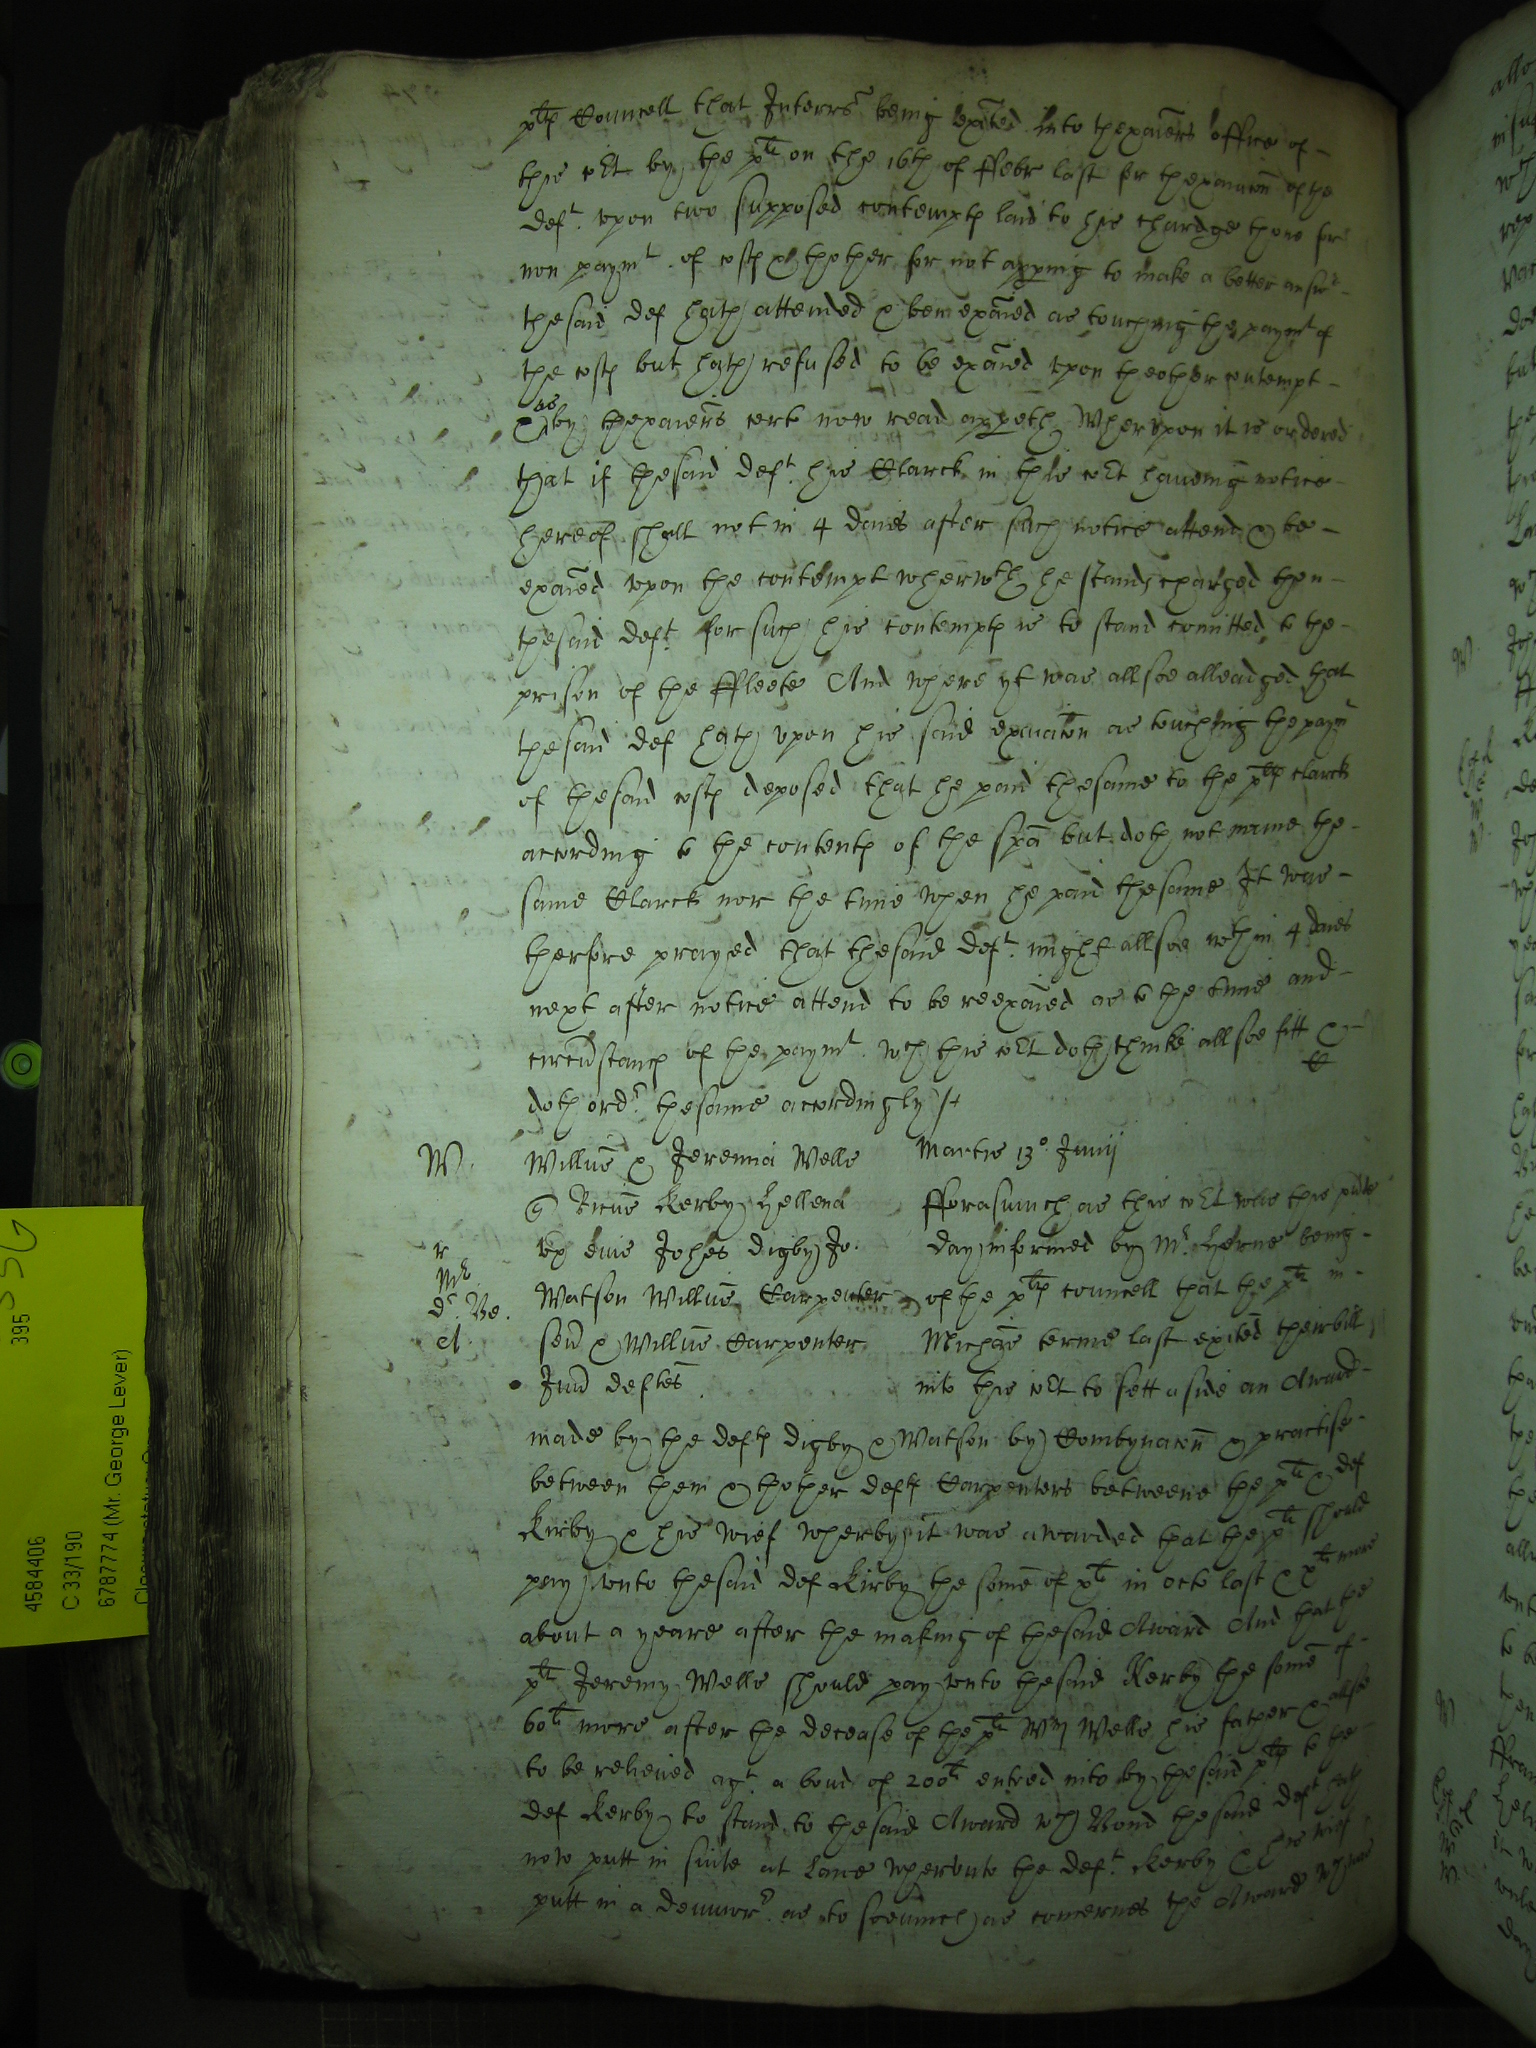 plts Councell that Interrs being exited into thexaiers office of
this cort by the plt on the 16th of ffebr last for thexaiacon of the
deft. upon two supposed contempts laid to his chardge thone for
non paymt. of costs & thother for not apping to make a better answr
thesaid def hath attended & bein exaied as touching the paymt of
the costs but hath refused to be exaied upon theother contempt
& as by thexaiers cert now read appeth Wherupon it is ordered
that if thesaid deft. his Clarck in this cort haveing notice
hereof shall not in 4 daies after such notice attend & be
exaied upon the contempt wherwth he stands charged then
thesaid deft. for such his contempts is to stand comitted to the
prison of the ffleete And where yt was allsoe alleadged that
thesaid def hath upon his said exaiacon as touching the paymt
of thesaid costs deposed that he paid thesame to the plts clarck
according to the contents of the spa but doth not name the
same Clarck nor the time when he paid thesame It was
therfore prayed that thesaid deft. might allsoe wthin 4 daies
next after notice attend to be reexaied as to the time and
circumstancs of the paymt. wch this cort doth thinke allsoe fitt &
doth ordr. thesame accordingly
W. Willus & Jeremia Wells Martis 13o. Junij
Ricus Kerby Hellena fforasmuch as this cort was this pnte
r ux eius Johes Digby Jo. day informed by Mr. Herne being
Mr Watson Willus Carpenter of the plts councell that the plts in
d. Be. sen & Willus Carpenter Michas terme last exited their bill
cl. Jun deftes into this cort to sett aside an Award
made by the defts Digby & Watson by Combynacon & practise
between them & thother defts Carpenters betweene the plts & def
Kirby & his wief wherby it was awarded that the plts should
pay unto thesaid def Kirby the some of xli in octo last & xli more
about a yeare after the making of thesaid Award And that the
plt Jeremy Wells should pay unto thesaid Kerby the some of
60li more after the decease of the plt Wm Wells his father & allsoe
to be relieved agt. a bond of 200li entred into by thesaid plts to the
def Kerby to stand to thesaid Award wch Bond thesaid deft hath
now putt in suite at Lawe wherunto the deft. Kerby & his wief
putt in a demurr. as to soemuch as concernes the Award
395
4584406
C 33/190
6787774 (Mr. George Lever)